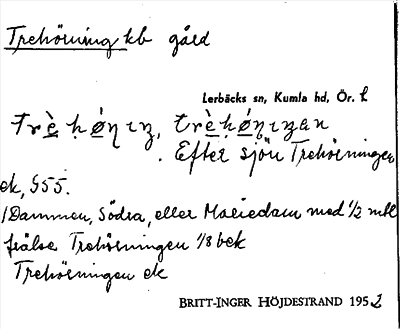 Trehörning kb gård
Lerbäcks sn, Kumla hd, Ör. l.
Efter sjön Trehörningen,
ek, §55.
/Dammen, Södra, eller Mariedam med 1/2 mtl
frälse Trehörningen 1/8 bek
Trehörningen ek
BRITT-INGER HÖJDESTRAND 1952